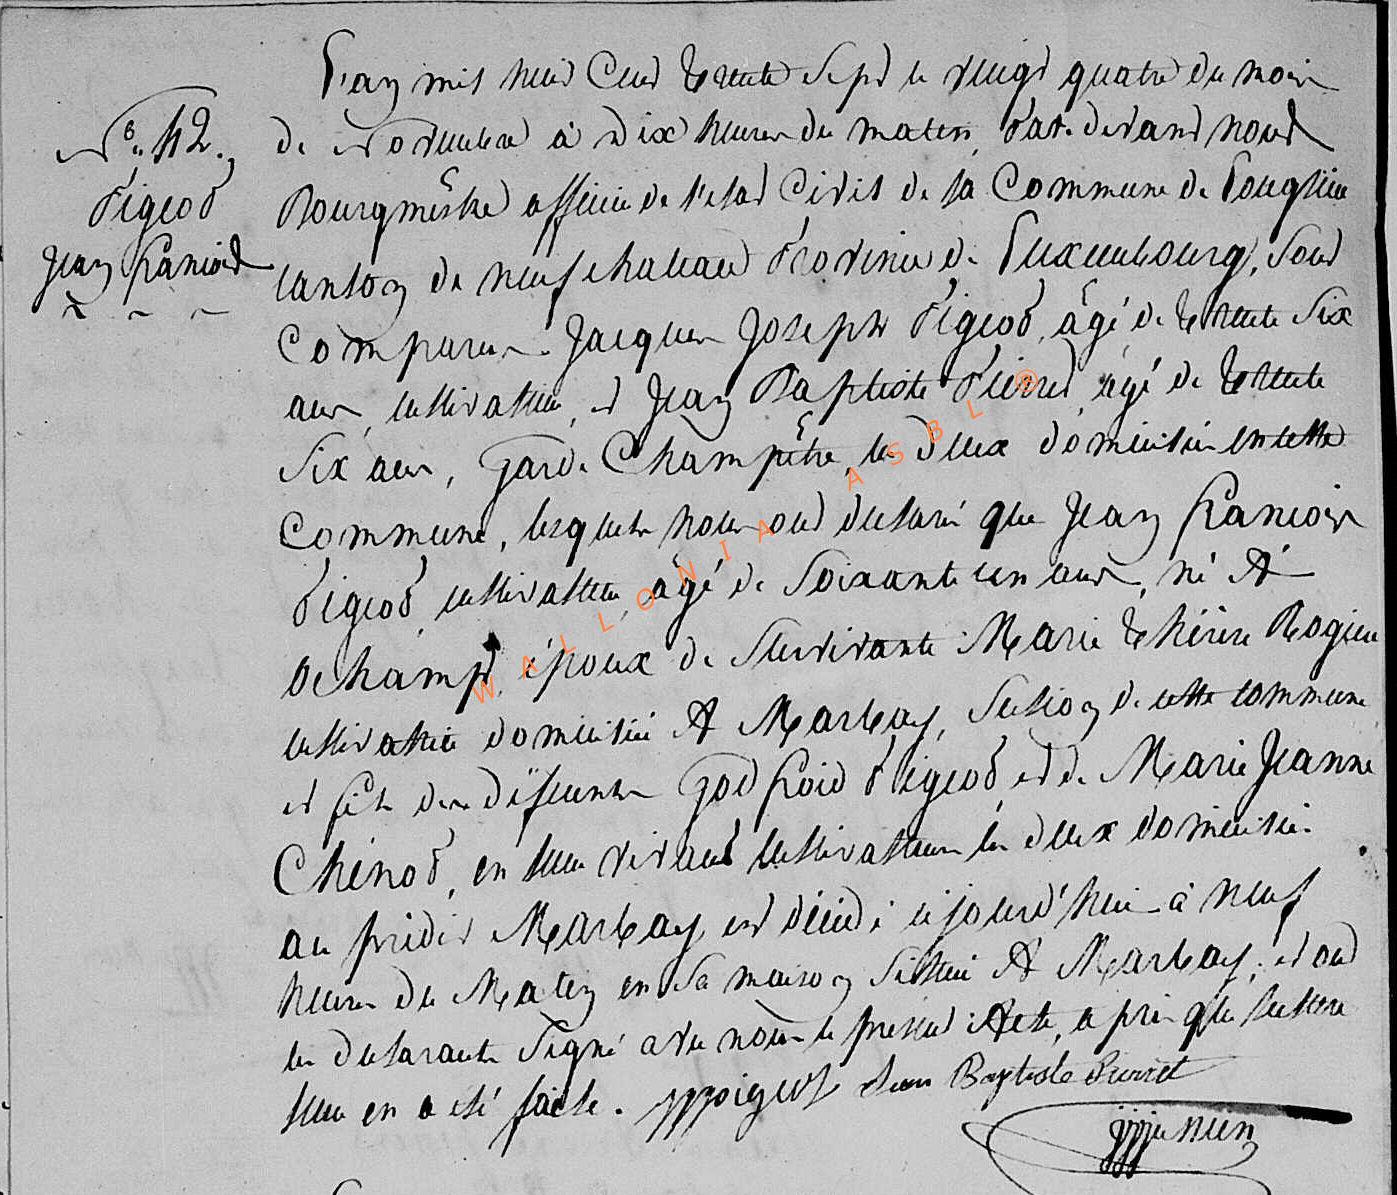 N° 42.
Pigeot
Jean francois
L'an mil huit Cent trente Sept le vingt quatre du mois
de Novembre à Dix heures du matin, Par devant nous
Bourgmêstre officier de l'etat Civil de la Commune de Longlier
canton de neufchateau Province de Luxembourg, sont
Comparus. Jacques Joseph Pigeot, âgé de trente Six
ans, cultivateur, et Jean Baptiste Pierret, agé de trente
Six ans, Garde Champêtre, les deux domiciliés en cette
Commune, lesquels nous ont declaré que Jean francois
Pigeot, cultivateur, agé de Soixante un ans, né A
Ochamp, époux de Survivante Marie thérèse Rogier
cultivatrice domicilié A Marbay, Section de cette commune
et fils des défunts Godfroid Pigeot et de Marie Jeanne
Chénot, en leur vivant Cultivateurs les deux domiciliés
au prédit Marbay, est décédé ce jourd'hui à neuf
heures du Matin en Sa maison Située A Marbay; et ont
les declarants Signé avec nous le présent Acte, après que lecture
leur en a été faite. JJPigeot Jean Baptiste Pierret
WALLONIA ASBL ®